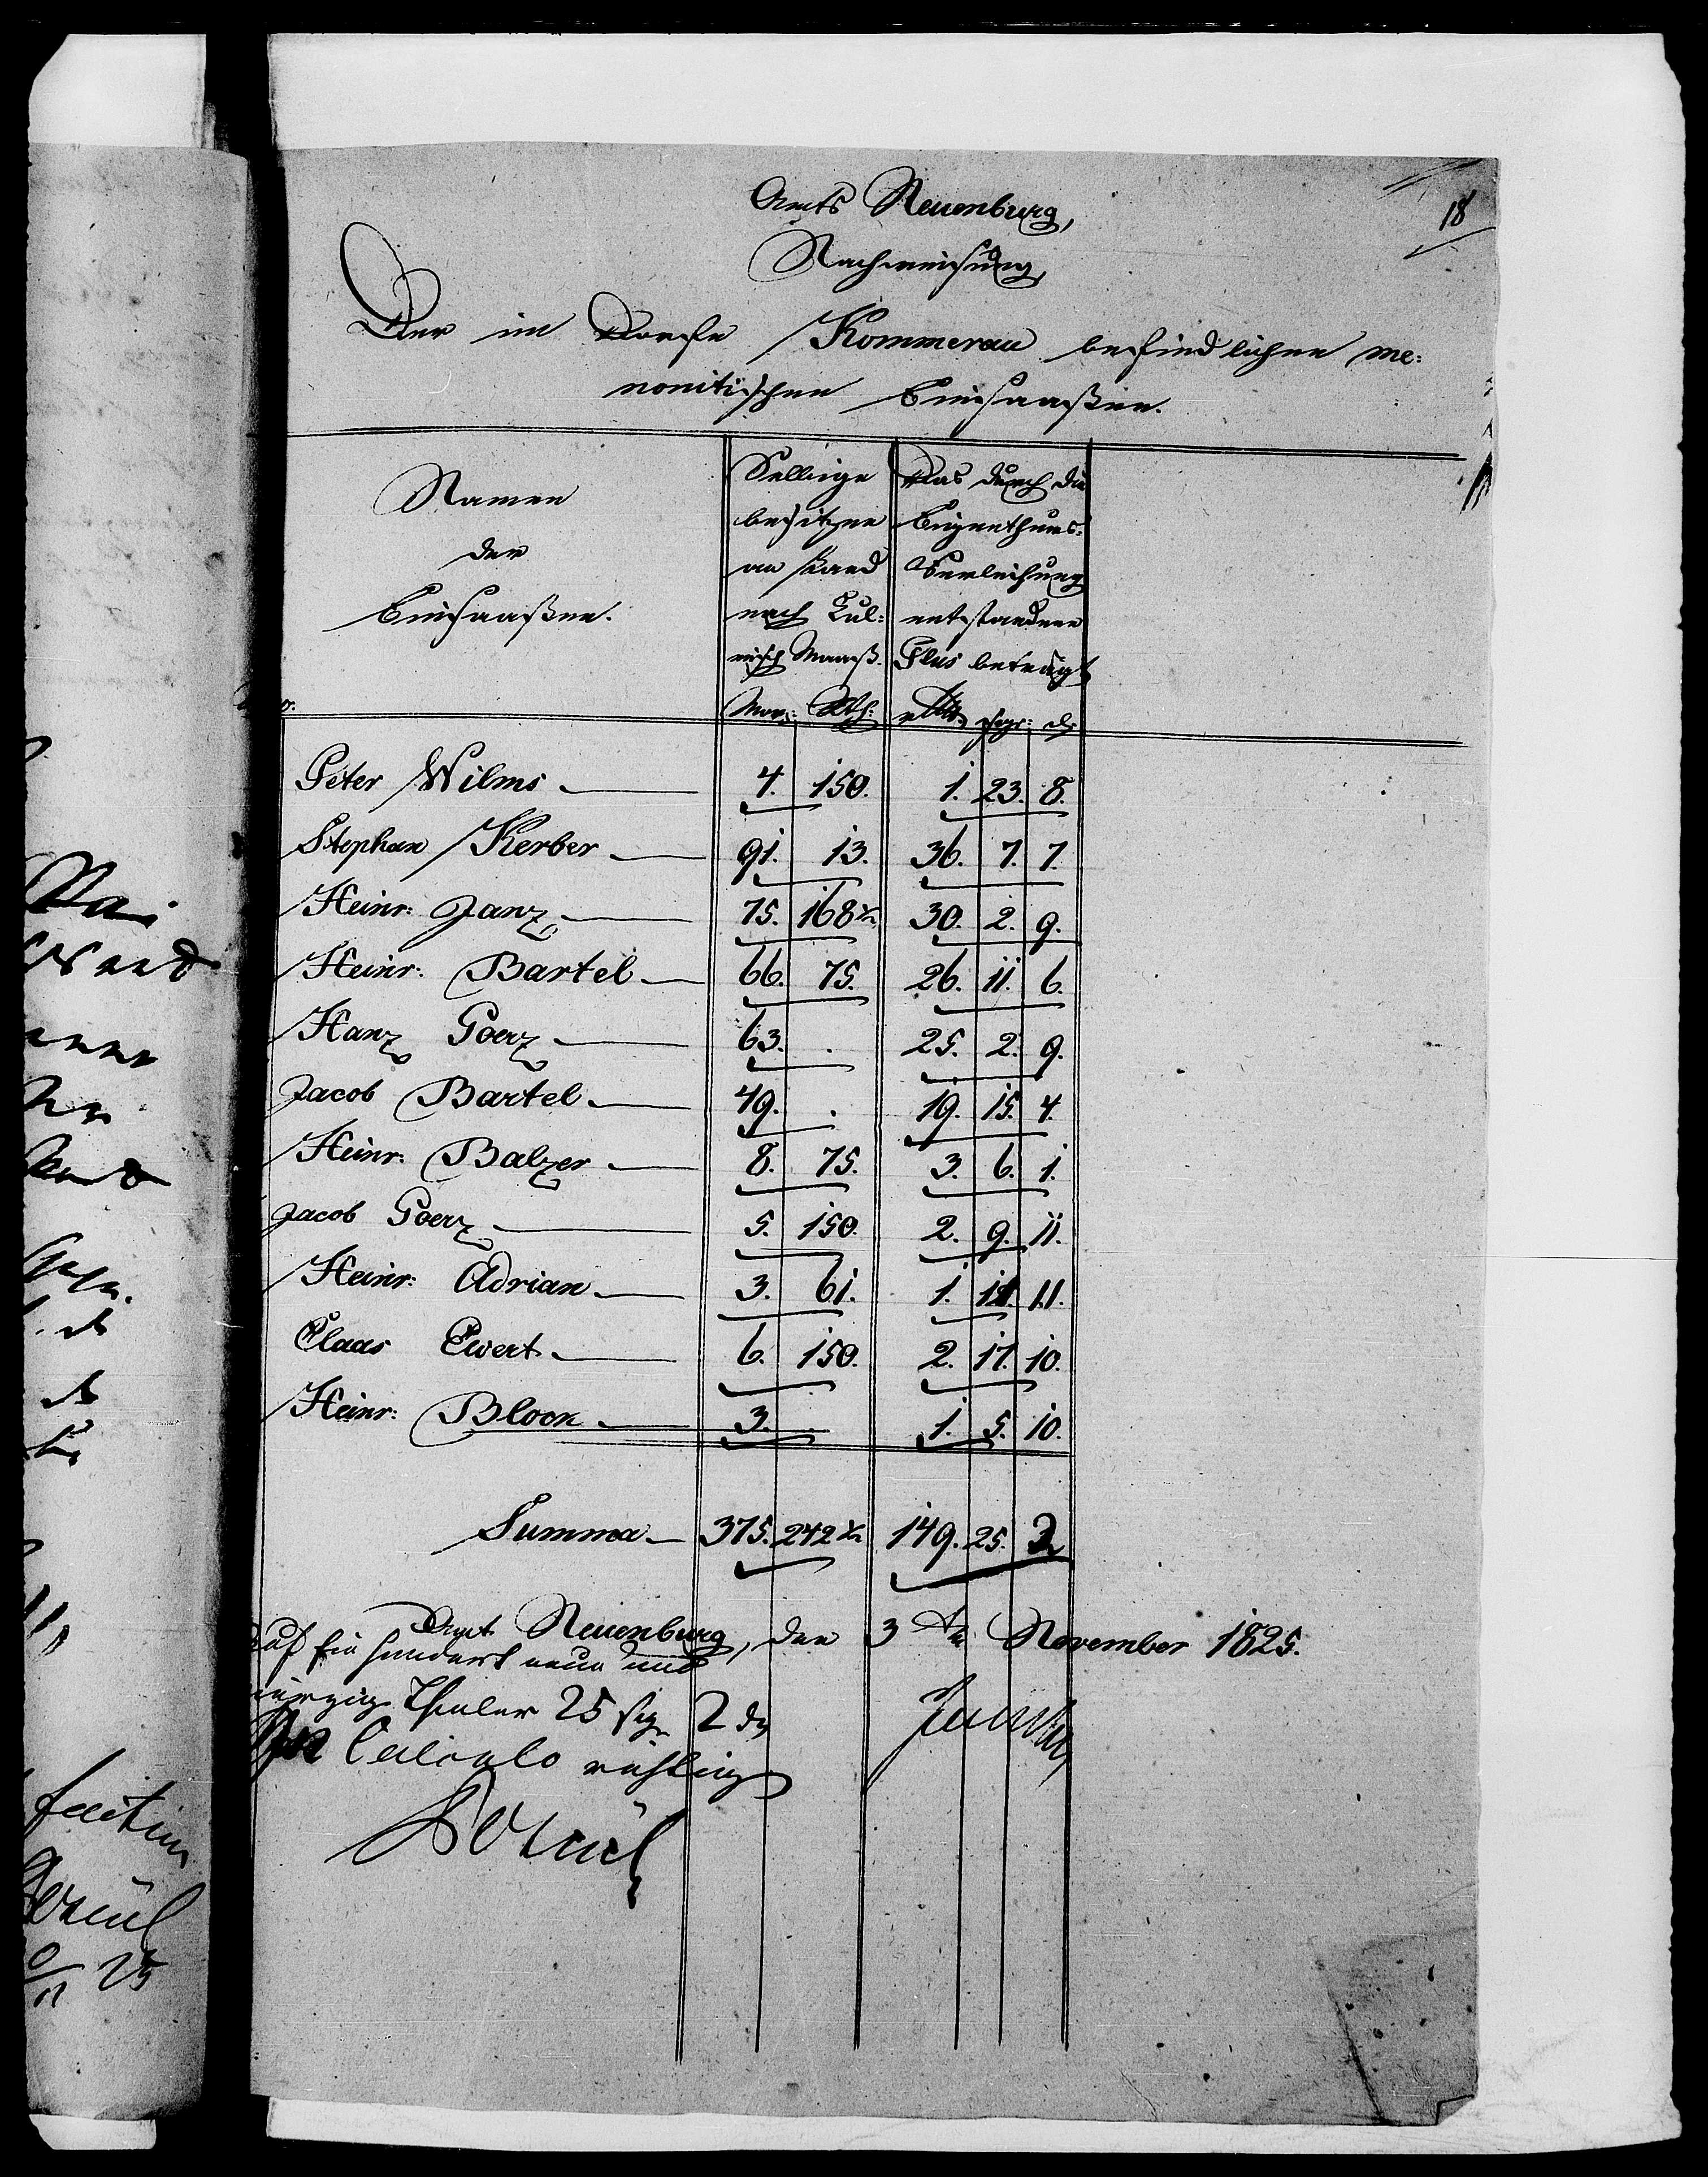 18
Amts Neuenburg,
Nachweisung,
Der im Dorfe Kommerau befindlichen me:
nonitischen Einsaaßen.
Namen
der
Einsaaßen.
Selbige
besitzen
an Land
nach Cul:
misch Maaß.
Mor: Rth:
Das durch die
Eigenthums:
Verleihung
entstandene
Plus beträgt
rthr. sgr: d.
Peter Wilms 4. 150. 1. 23. 8.
Stephan Kerber 91. 13. 36. 7. 7.
Heinr: Janz 75. 168½ 30. 2. 9.
Heinr: Bartel 66. 75. 26. 11. 6.
Hanz Goerz 63. . 25. 2. 9.
Jacob Bartel 49. . 19. 15. 4.
Heinr: Balzer 8. 75. 3. 6. 1.
Jacob Goerz 5. 150. 2. 9. 11.
Heinr: Adrian 3. 61. 1. 11.
Claas Ewert 6. 150. 2. 17. 10.
Heinr: Block 3. 1. 5. 10.
Summa 375. 242½ 149. 25. 2
Amt Neuenburg, den 3ten November 1825.
auf Ein hundert neun und
vierzig Thaler 25 sgr 2 d
Calculo richtig